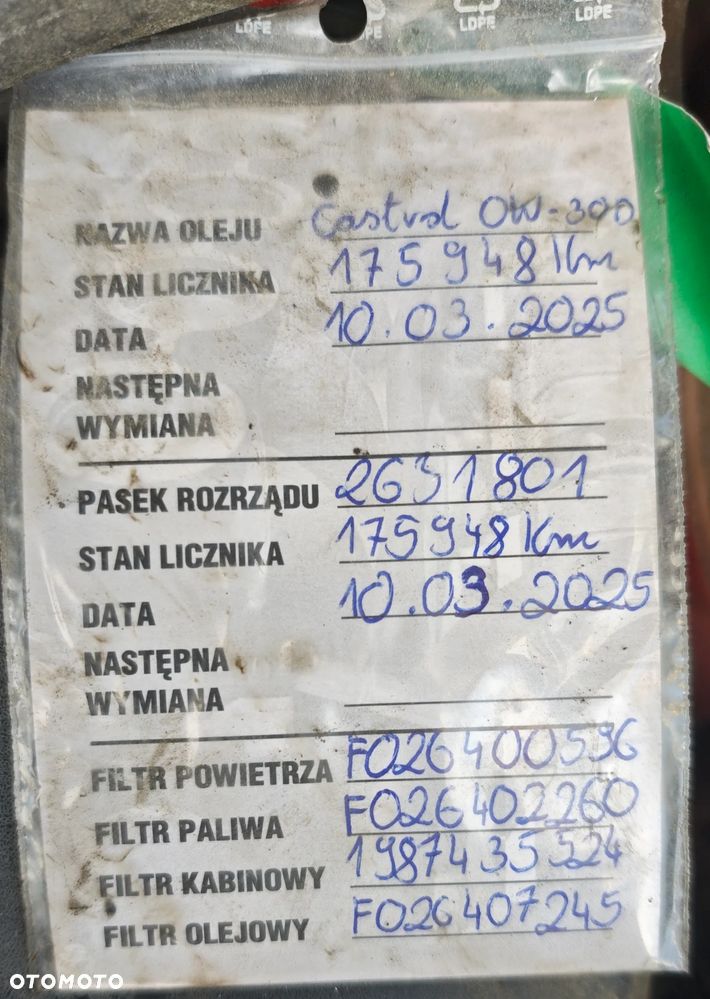 LDPE
LDPE
LDPE
NAZWA OLEJU Castrol 0W-300
STAN LICZNIKA 175948 Km
DATA 10.03.2025
NASTĘPNA
WYMIANA
PASEK ROZRZĄDU 2631801
STAN LICZNIKA 175948 Km
DATA 10.03.2025
NASTĘPNA
WYMIANA
FILTR POWIETRZA F026400596
FILTR PALIWA F026402260
FILTR KABINOWY 1987435524
FILTR OLEJOWY F026407245
OTOMOTO